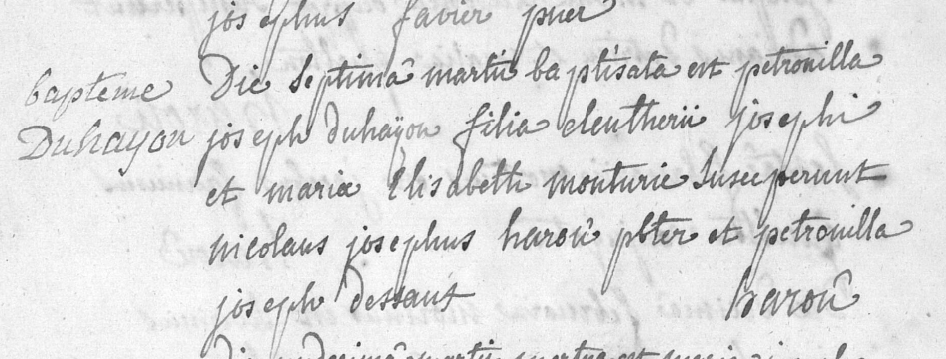 josephus favier puer
bapteme
Duhayon
Die Septimâ martii baptisata est petronilla
joseph duhaÿon filia eleutherii josephi
et mariæ Elisabeth monturie Susceperunt
nicolaus josephus haroû pbter et petronilla
joseph dessaut
haroû